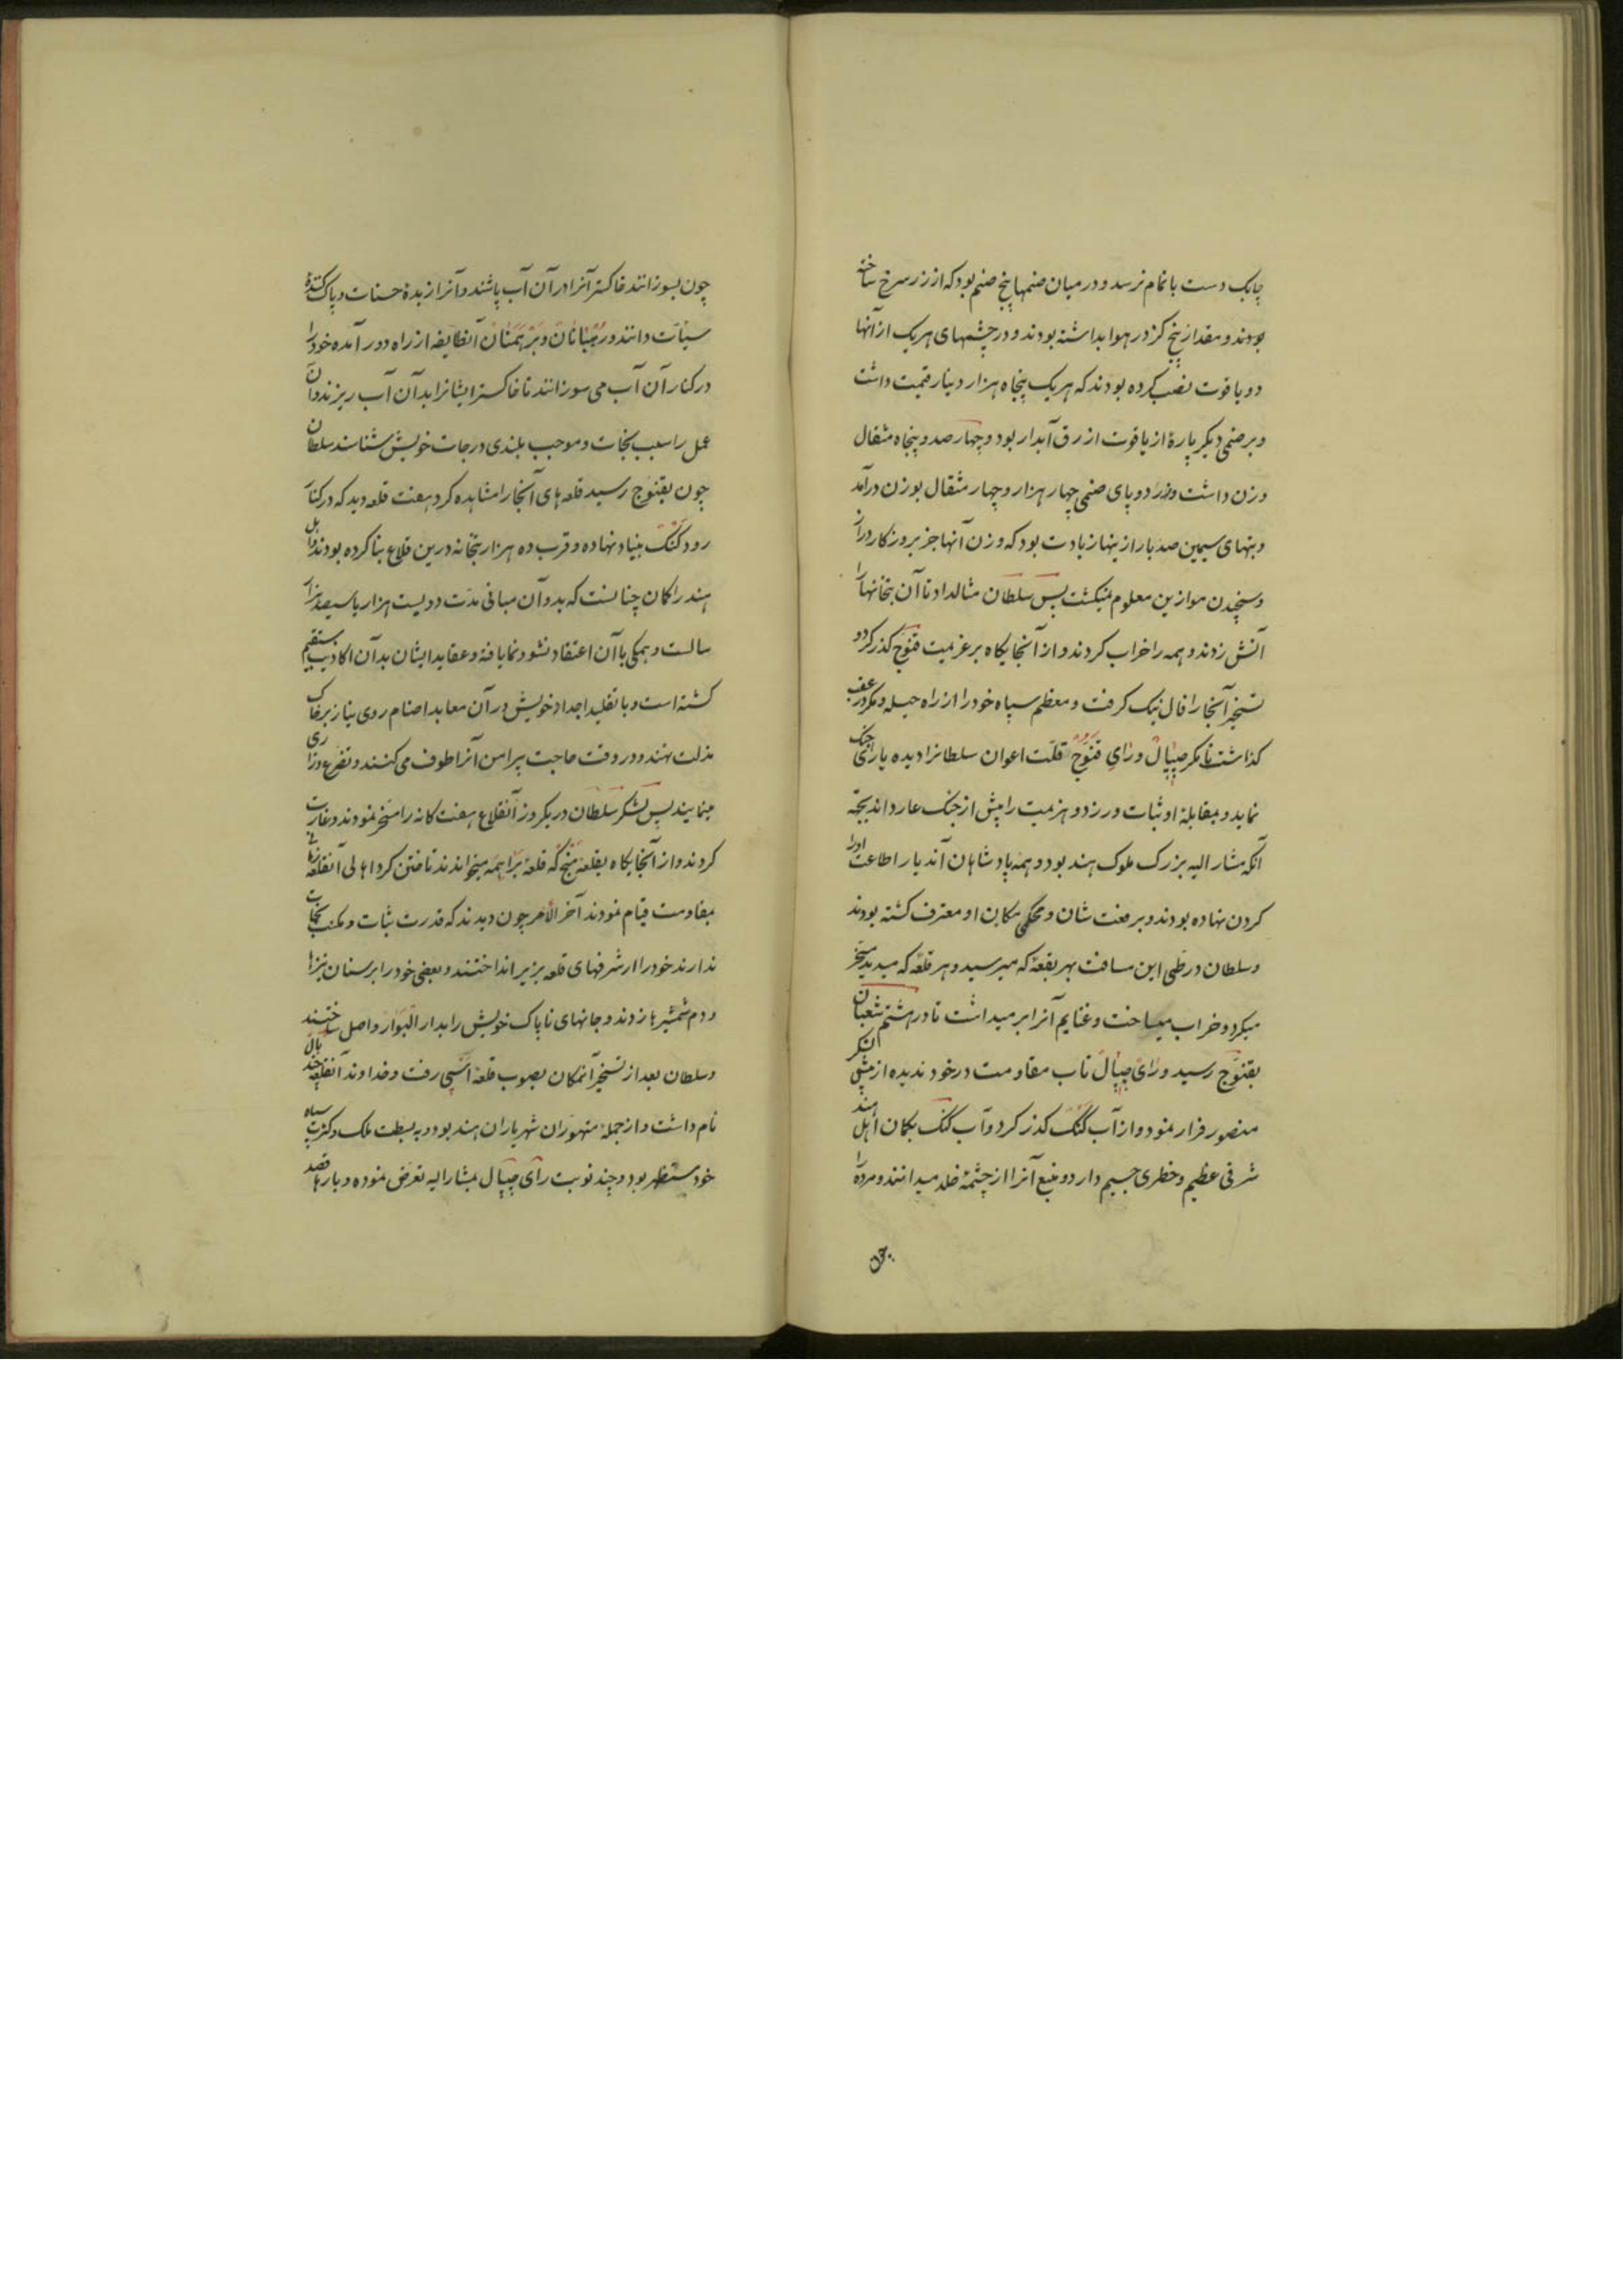 چابک دست باتمام نرسد و در میان صنمها پنج صنم بود که از زر سرخ ساخته
بودند و مقدار پنج گز در هوا بداشته بودند و در چشمهای هر یک از آنها
دو یاقوت نصب کرده بودند که هر یک پنجاه هزار دینار قیمت داشت
و بر صنمی دیگر پارهٔ از یاقوت ازرق آبدار بود و چهار صد و پنجاه مثقال
وزن داشت و از دو پای صنمی چهار هزار و چهار مثقال بوزن درآمد
و بتهای سیمین صد بار از ینها زیادت بود که وزن آنها جز بروزکار دراز
و سنجیدن موازین معلوم نمیکشت پس سلطان مثالداد تا آن بتخانها را
آتش زدند و همه را خراب کردند و از آنجایکاه بر عزیمت قنوج گذر کرد و
تسخیر آنجا را فال نیک کرفت و معظم سپاه خود را از راه حیله و مکر در عقب
کذاشت تا مکر جیپال و رای قنوج قلت اعوان سلطانرا دیده یارای جنک
نماید و بمقابلهٔ او ثبات ورزد و هزیمت را پیش از جنک عار داند بجهة
آنکه مشار الیه بزرک ملوک هند بود و همه پادشاهان آندیار اطاعت اورا
کردن نهاده بودند و برفعت شان و محکمی مکان او معترف کشته بودند
و سلطان در طی این مسافت بهر بقعهٔ که میرسید و هر قلعه که میدید مسخر
میکرد و خراب میساخت و غنایم آنرا بر میداشت تا در هشتم شعبان
بقنوج رسید و رای جیپال تاب مقاومت در خود ندیده از پیش لشکر
منصور فرار نمود و از آب کنک کذر کرد و آب کنک بکمان اهل هند
شرفی عظیم و خطری جسیم دارد و منبع آنرا از چشمهٔ خلد میدانند و مرده را
چون
چون بسوزانند خاکستر آنرا در آن آب پاشند و آنرا زبدهٔ حسنات و پاک کنندهٔ
سیئات دانند و رهبانان و برهمنان آنطایفه از راه دور آمده خود را
در کنار آن آب می سوزانند تا خاکستر ایشانرا بدآن آب ریزند و آن
عمل را سبب نجات و موجب بلندی درجات خویش شناسند سلطان
چون بقنوج رسید قلعه های آنجا را مشاهده کرد هفت قلعه دید که در کنار
رود کنک بنیاد نهاده و قرب ده هزار بتخانه درین قلاع بنا کرده بودند و اهل
هند را کمان چنانست که بدو آن مبانی مدت دویست هزار یا سیصد هزار
سالست و همکی با آن اعتقاد نشو و نما یافته و عقاید ایشان بدآن اکاذیب مستقیم
کشته است و با تقلید اجداد خویش در آن معابد اصنام روی نیاز بر خاک
مذلت نهند و در وقت حاجت پیرامن آنرا طوف می کنند و تضرع و زاری
مینمایند پس لشکر سلطان در یکروز آنقلاع هفت کانه را مسخر نمودند و غارت
کردند و از آنجایکاه بقلعهٔ منج که قلعهٔ براهمه میخوانند تاختن کرد اهالی آنقلعه
بمقاومت قیام نمودند آخر الامر چون دیدند که قدرت ثبات و مکنت نجات
ندارند خود را از شرفهای قلعه بزیر انداختند و بعضی خود را بر سنان نیزها
و دم شمشیرها زدند و جانهای ناپاک خویش را بدار البوار واصل ساختند
و سلطان بعد از تسخیر آنمکان بصوب قلعهٔ آسی رفت و خداوند آنقلعه چندبال
نام داشت و از جملهٔ متهوران شهریاران هند بود و به بسطت ملک و کثرت سپاه
خود مستظهر بود و چند نوبت رای جیپال بمشار الیه تعرض نموده و بارها قصد